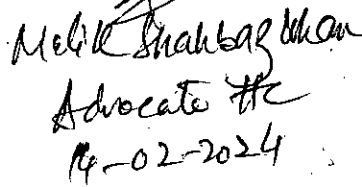 Malik Shahbaz Khan
Advocate HC
14-02-2024